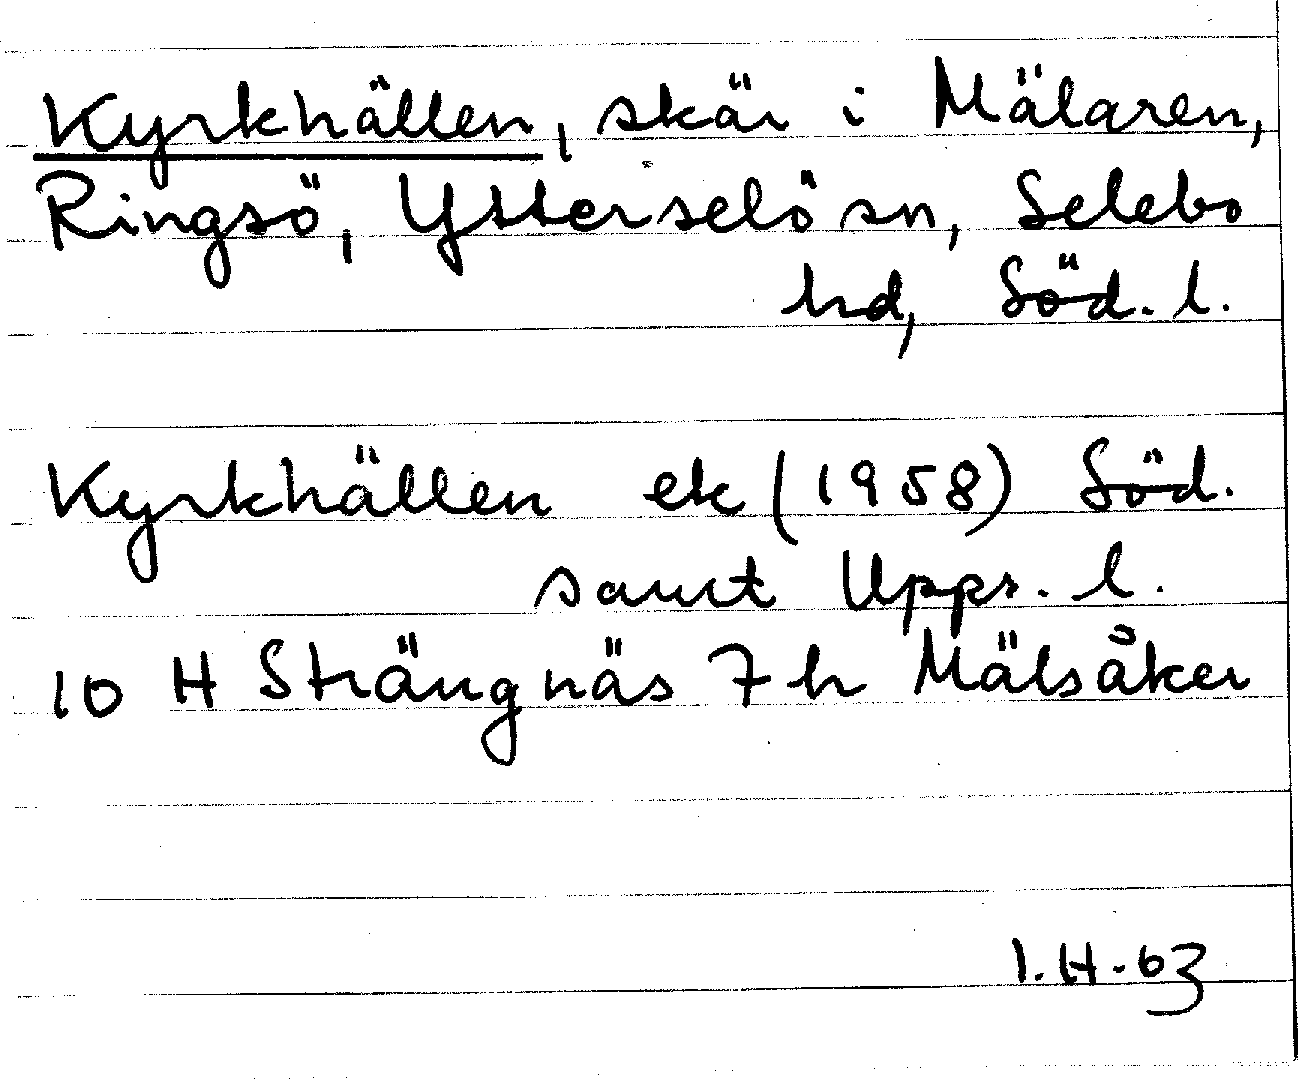 Kyrkhällen, skär i Mälaren,
Ringsö, Ytterselö sn, Selebo
hd, Söd. l.
Kyrkhällen ek (1958) Söd.
samt Upps. l.
10 H Strängnäs 7 h Mälsåker
I.H.63